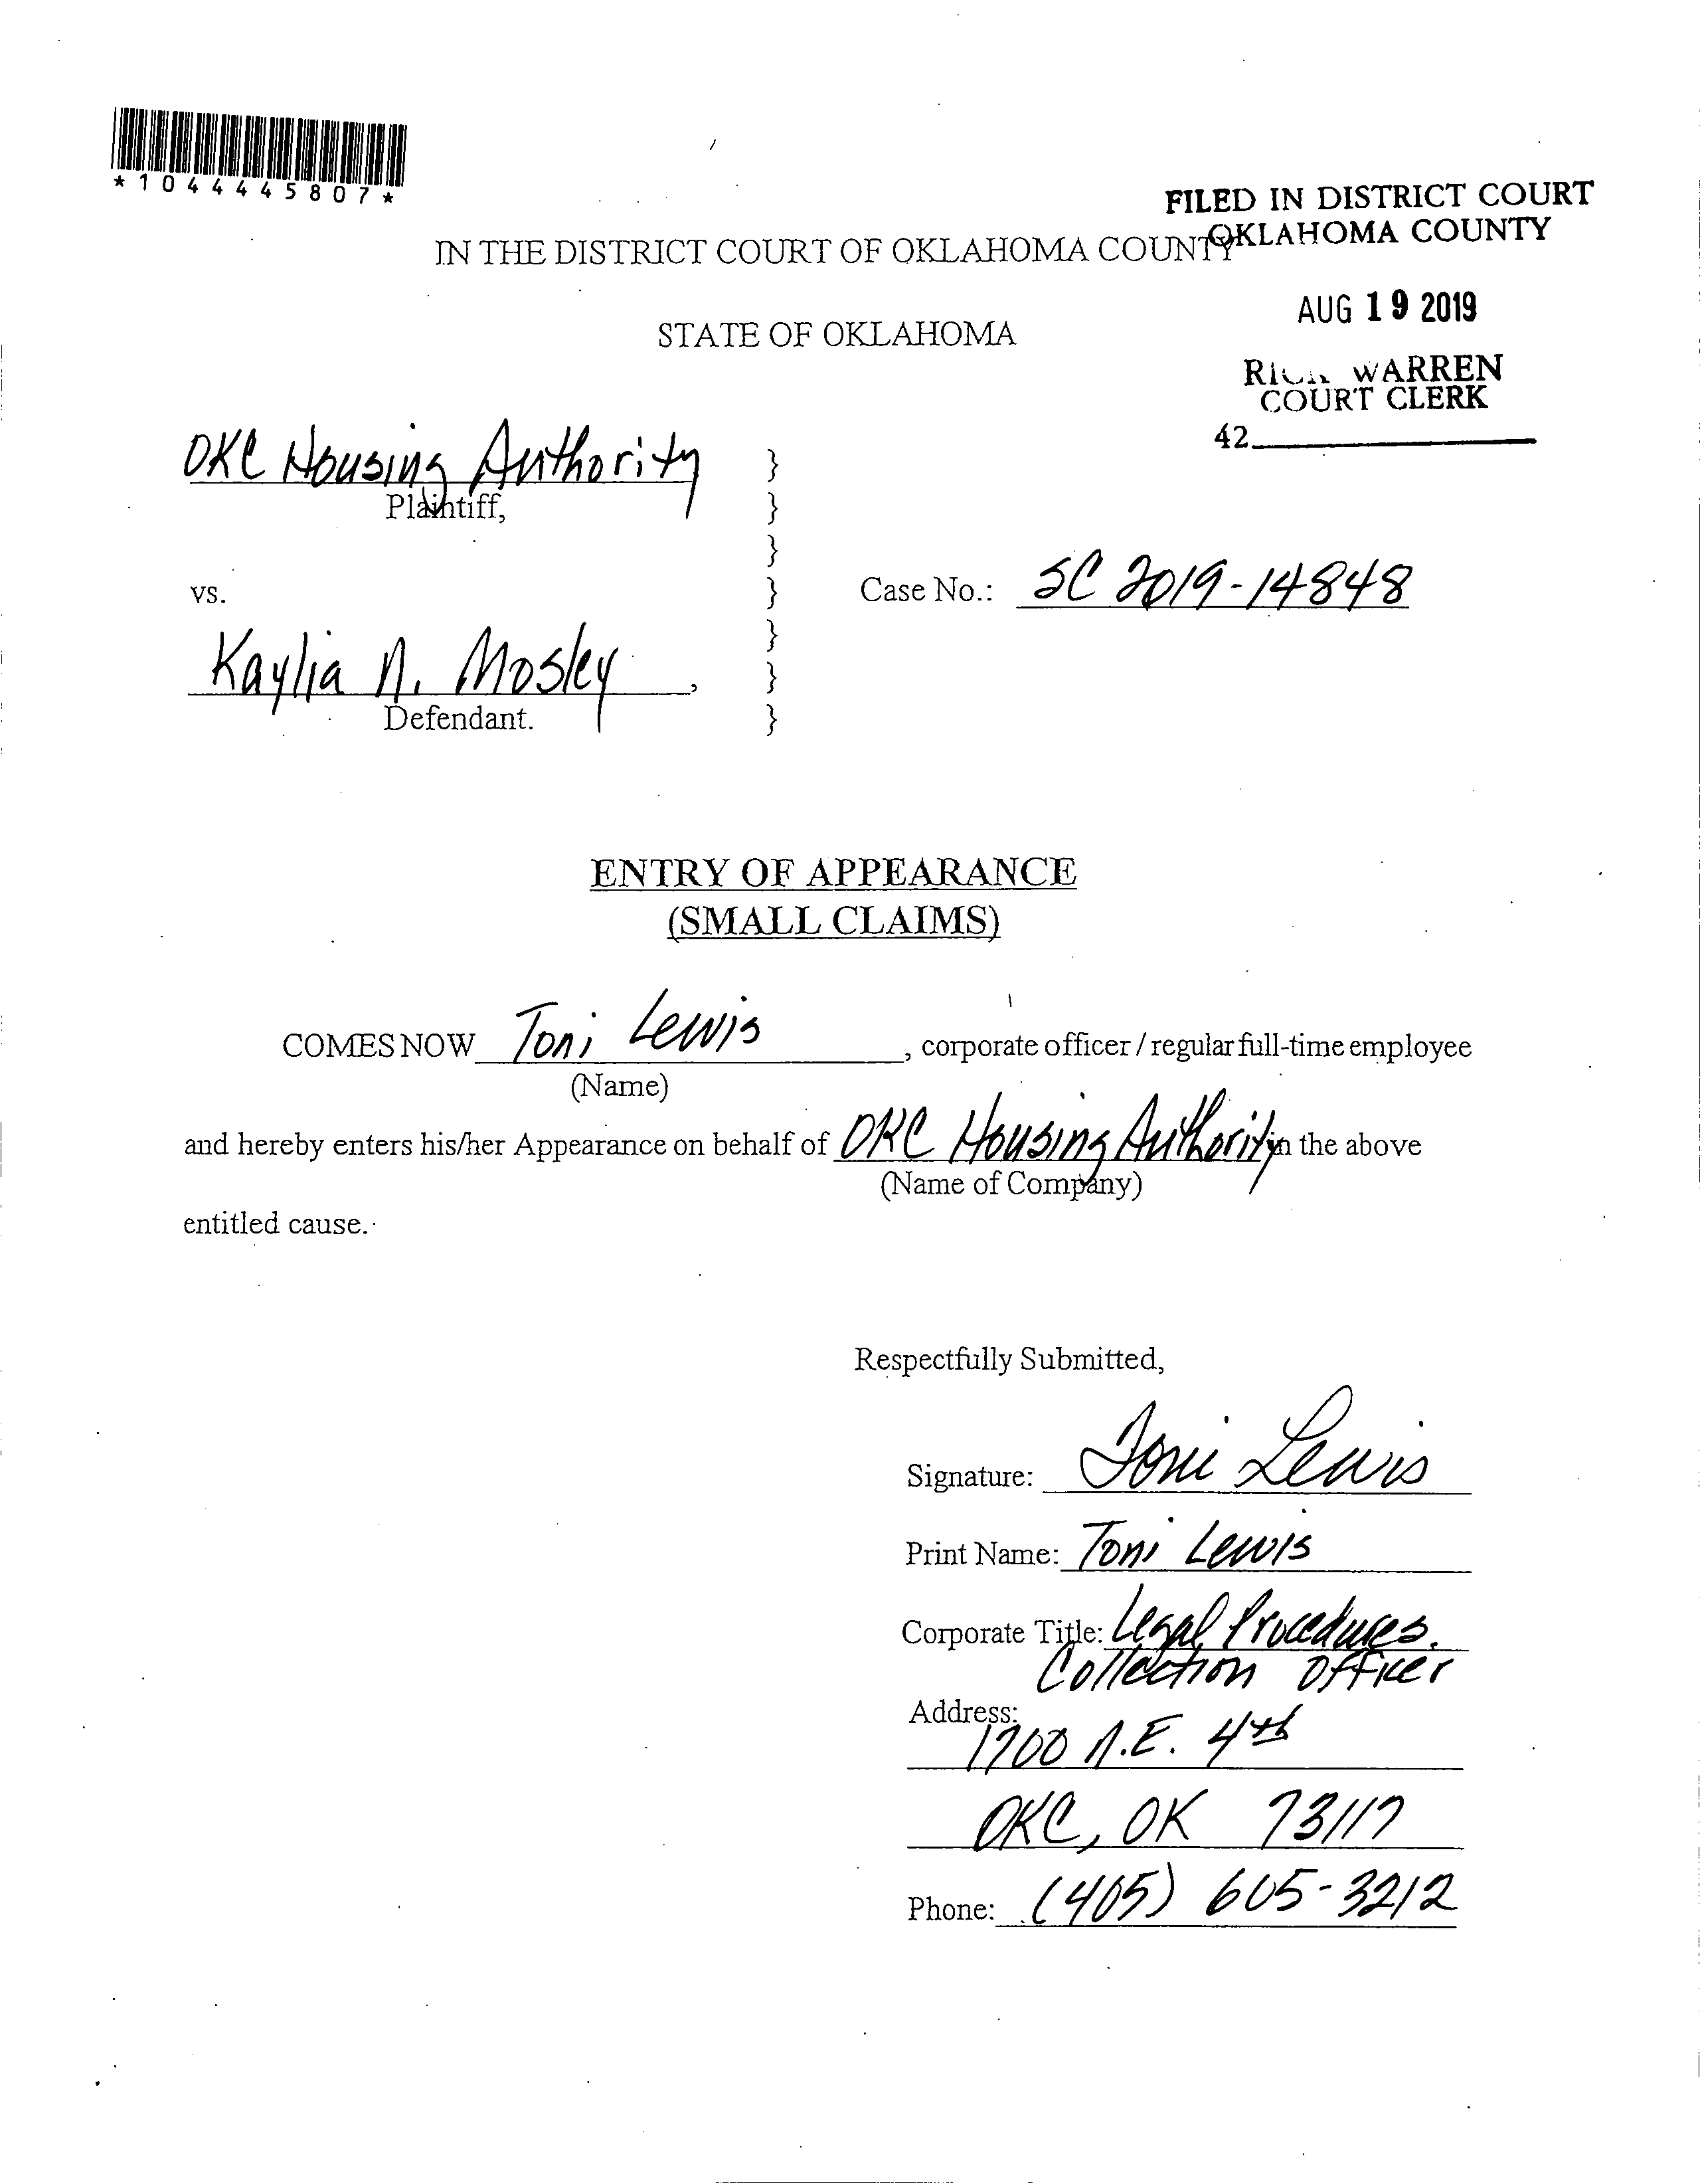 *1044445807*
FILED IN DISTRICT COURT
OKLAHOMA COUNTY
IN THE DISTRICT COURT OF OKLAHOMA COUNTY
AUG 19 2019
STATE OF OKLAHOMA
RICK WARREN
COURT CLERK
42
OKC Housing Authority }
Plaintiff, }
}
vs. } Case No.: SC 2019-14848
}
Kaylia N. Mosley , }
Defendant. }
ENTRY OF APPEARANCE
(SMALL CLAIMS)
COMES NOW Toni Lewis , corporate officer / regular full-time employee
(Name)
and hereby enters his/her Appearance on behalf of OKC Housing Authority in the above
(Name of Company)
entitled cause.
Respectfully Submitted,
Signature: Toni Lewis
Print Name: Toni Lewis
Corporate Title: Legal Procedures.
Collection Officer
Address:
1700 N.E. 4th
OKC, OK 73117
Phone: (405) 605-3212